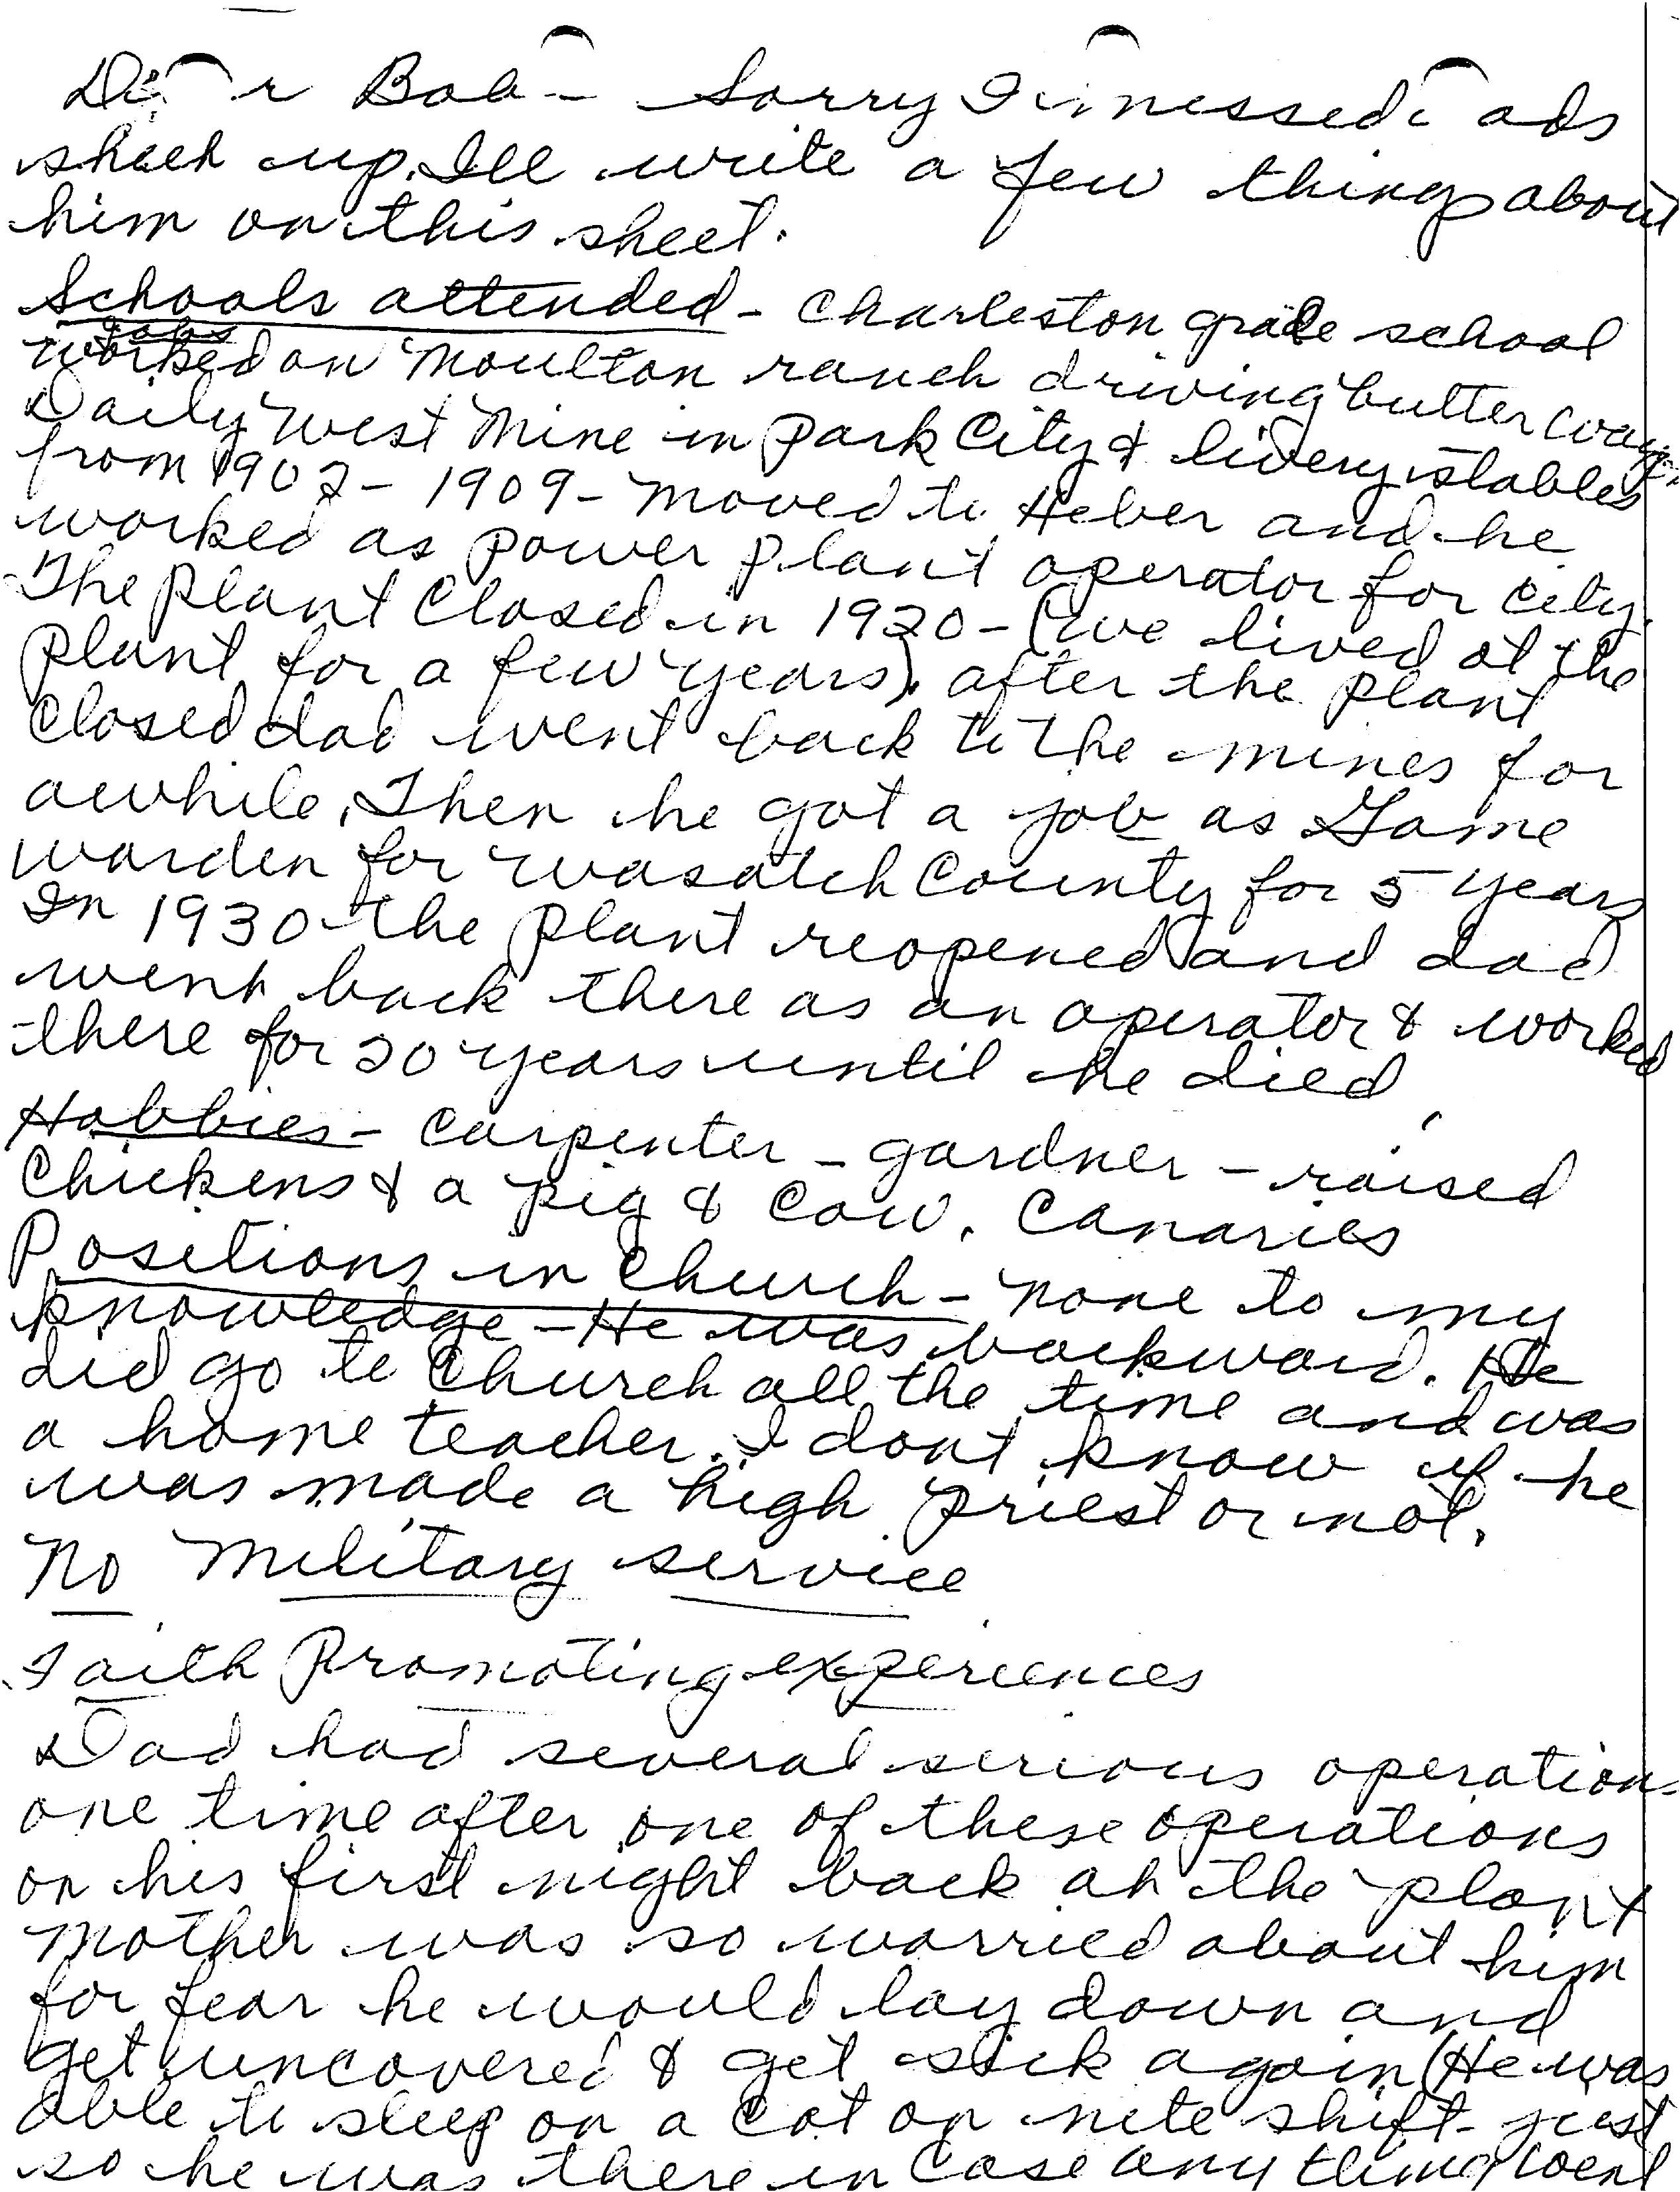 Dear Bob - Sorry I messed dads
sheet up. Ill write a few things about
him on this sheet.
Schools attended - Charleston grade school
Jobs
worked on Moulton ranch driving butter wagon
Daily West Mine in Park City & livery stables
from 1902 - 1909 - moved to Heber and he
worked as power plant operator for city.
The plant closed in 1920 - (we lived at the
plant for a few years). after the plant
closed dad went back to the mines for
awhile. Then he got a job as Game
warden for Wasatch County for 5 years
In 1930 the plant reopened and dad
went back there as an operator & worked
there for 20 years until he died.
Hobbies - Carpenter - gardner - raised
Chickens & a pig & cow. Canaries
Positions in Church - none to my
knowledge - He was backward. He
did go to Church all the time and was
a home teacher. I dont know if he
was made a high priest or not.
No Military service
Faith Promoting experiences
Dad had several serious operations
one time after one of these operations
on his first night back at the plant
Mother was so worried about him
for fear he would lay down and
get uncovered & get sick again (He was
able to sleep on a cot on nite shift - just
so he was there in case any thing went